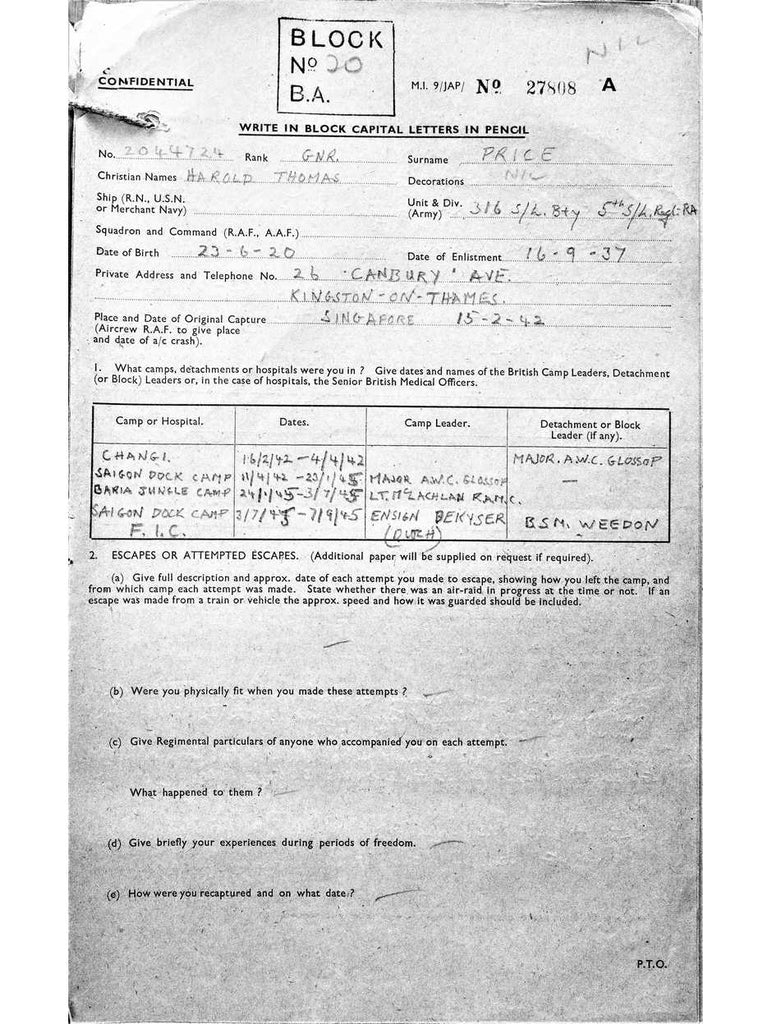 BLOCK
Nº 20
B.A.
NIL
CONFIDENTIAL
M.I. 9/JAP/ Nº 27808 A
WRITE IN BLOCK CAPITAL LETTERS IN PENCIL
No. 2044724 Rank GNR. Surname PRICE
Christian Names HAROLD THOMAS Decorations NIL
Ship (R.N., U.S.N. or Merchant Navy)
Unit & Div. (Army) 316 S/L. Bty 5th S/L. Regt-RA
Squadron and Command (R.A.F., A.A.F.)
Date of Birth 23-6-20 Date of Enlistment 16-9-37
Private Address and Telephone No. 26 'CANBURY' AVE.
KINGSTON-ON-THAMES.
Place and Date of Original Capture SINGAPORE 15-2-42
(Aircrew R.A.F. to give place
and date of a/c crash).
1. What camps, detachments or hospitals were you in ? Give dates and names of the British Camp Leaders, Detachment
(or Block) Leaders or, in the case of hospitals, the Senior British Medical Officers.
Camp or Hospital. Dates. Camp Leader. Detachment or Block Leader (if any).
CHANGI. 16/2/42 – 4/4/42 MAJOR. A.W.C. GLOSSOP
SAIGON DOCK CAMP 11/4/42 – 23/1/45 MAJOR A.W.C. GLOSSOP —
BARIA JUNGLE CAMP 24/1/45 – 3/7/45 LT. McLACHLAN R.A.M.C.
SAIGON DOCK CAMP 3/7/45 – 7/9/45 ENSIGN BEKYSER B.S.M. WEEDON
F.I.C. (DUTCH)
2. ESCAPES OR ATTEMPTED ESCAPES. (Additional paper will be supplied on request if required).
(a) Give full description and approx. date of each attempt you made to escape, showing how you left the camp, and
from which camp each attempt was made. State whether there was an air-raid in progress at the time or not. If an
escape was made from a train or vehicle the approx. speed and how it was guarded should be included.
—
(b) Were you physically fit when you made these attempts ? —
(c) Give Regimental particulars of anyone who accompanied you on each attempt. —
What happened to them ? —
(d) Give briefly your experiences during periods of freedom. —
(e) How were you recaptured and on what date ? —
P.T.O.